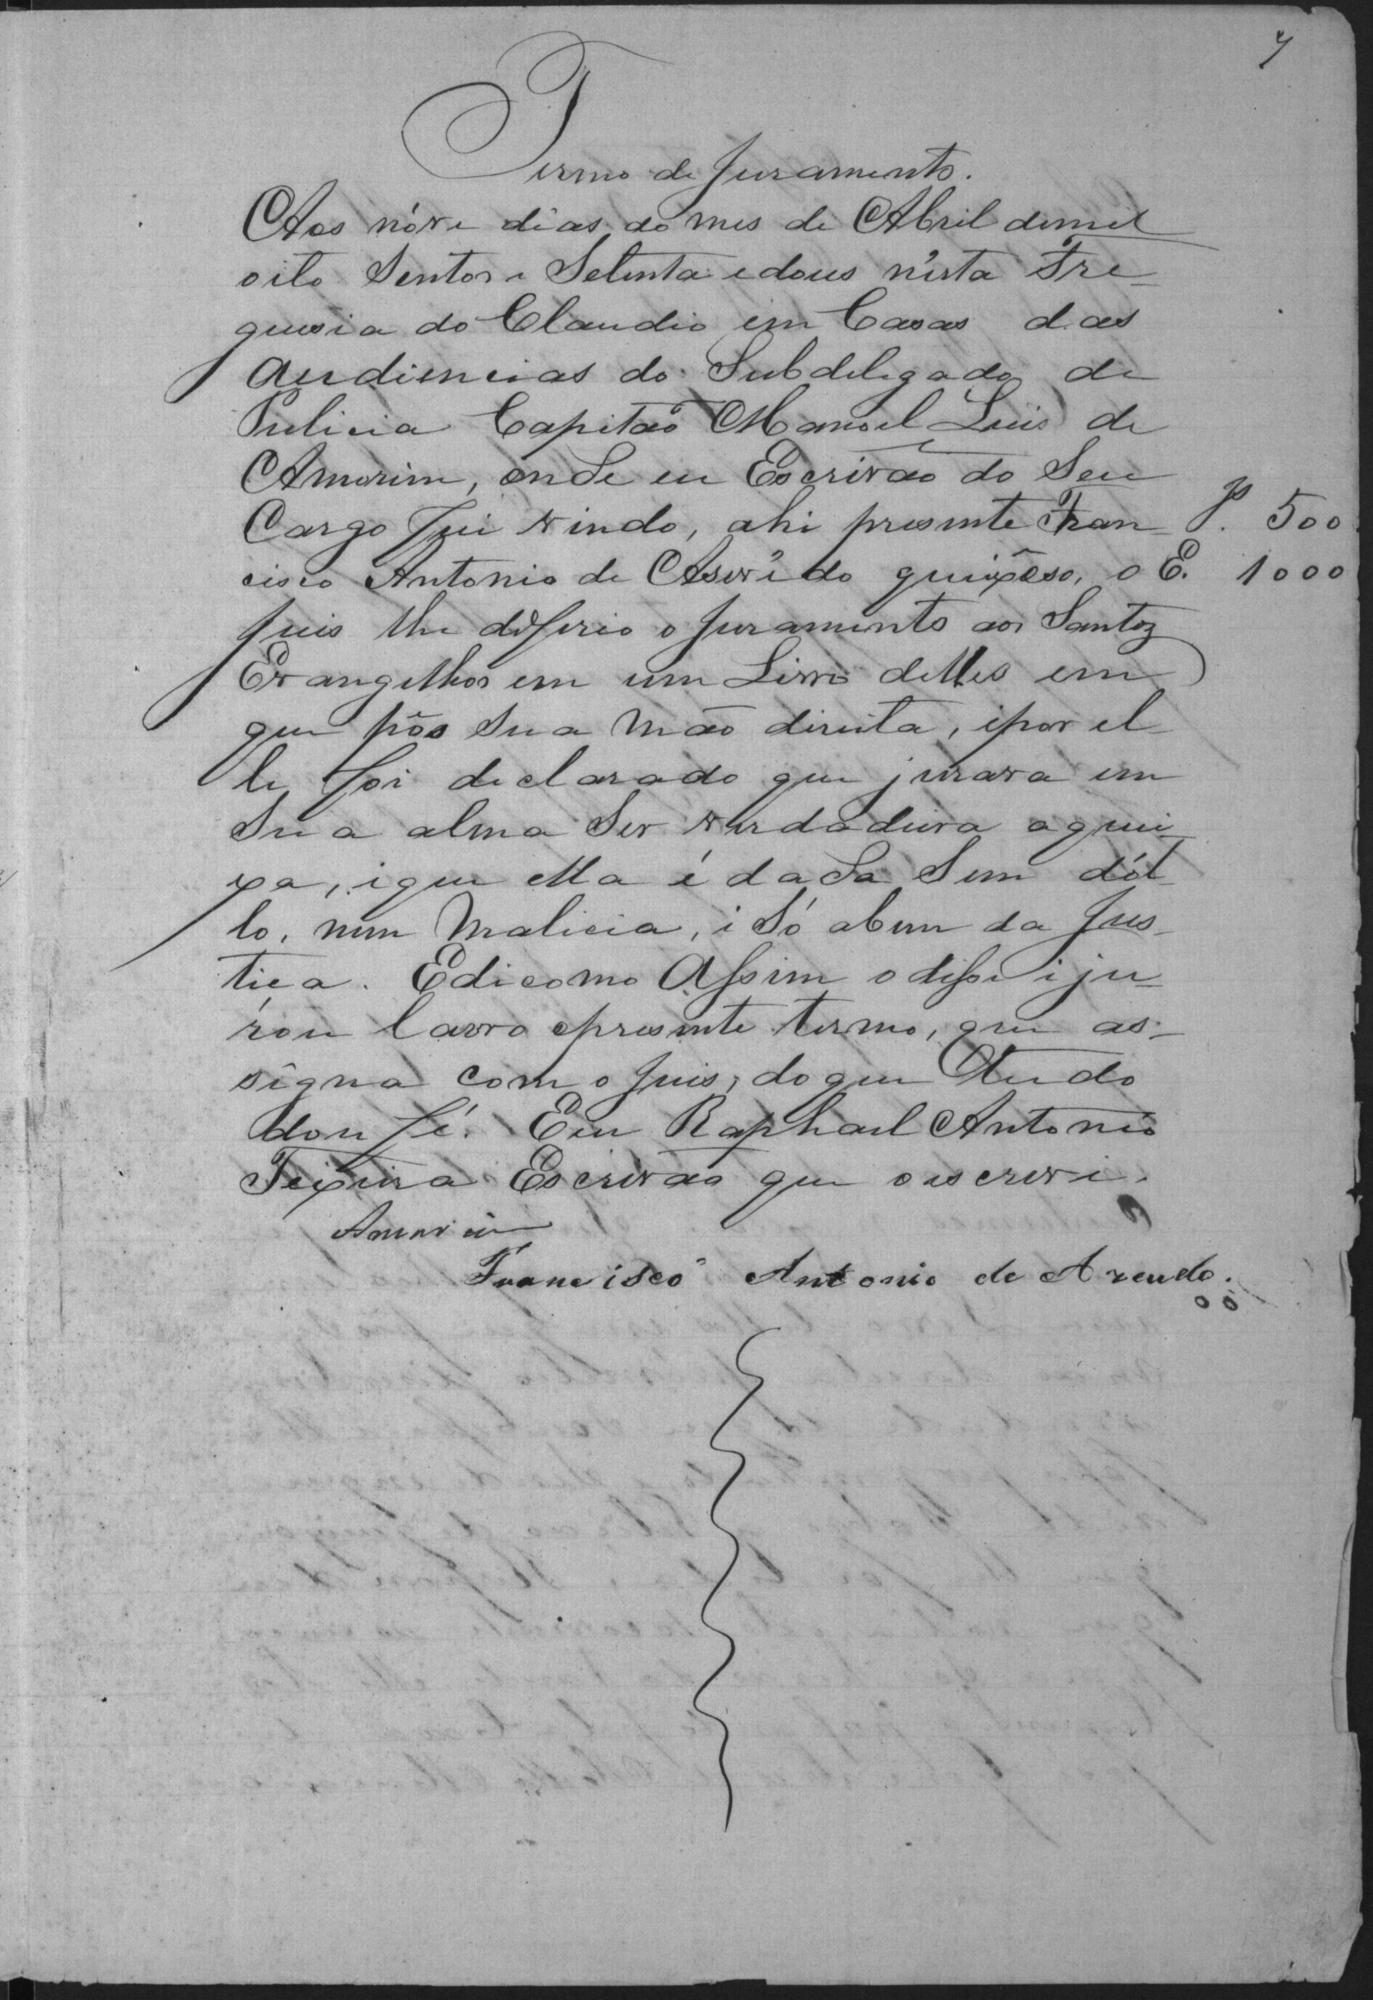 7
Termo de Juramento.
Aos nóve dias do mes de Abril demil
oito Sentos e Setenta e dous nésta Fre-
guesia do Claudio em Casas das
Audiencias do Subdelegado de
Pulicia Capitão Manoel Luis de
Amorim, onde eu Escrivão do Seu
Cargo fui vindo, ahi presente Fran- Js. 500
cisco Antonio de Asevêdo queixôso, o E. 1000
Juis lhe diferio o juramento aos Santos
Evangelhos em um Livro delles em
que pôs sua mão direita, e por el-
le foi declarado que jurava em
Sua alma Ser verdadeira a quei-
xa, e que ella é dada Sem dól-
lo, nem Malicia, e Só abem da Jus-
tica. E dicomo Assim o disse e ju-
rou lavro o presente termo, que as-
signa com o Juis, do que tudo
dou fé. Eu Raphael Antonio
Teixeira Escrivão que o escrevi.
Amorim
Francisco Antonio de Azeudo.